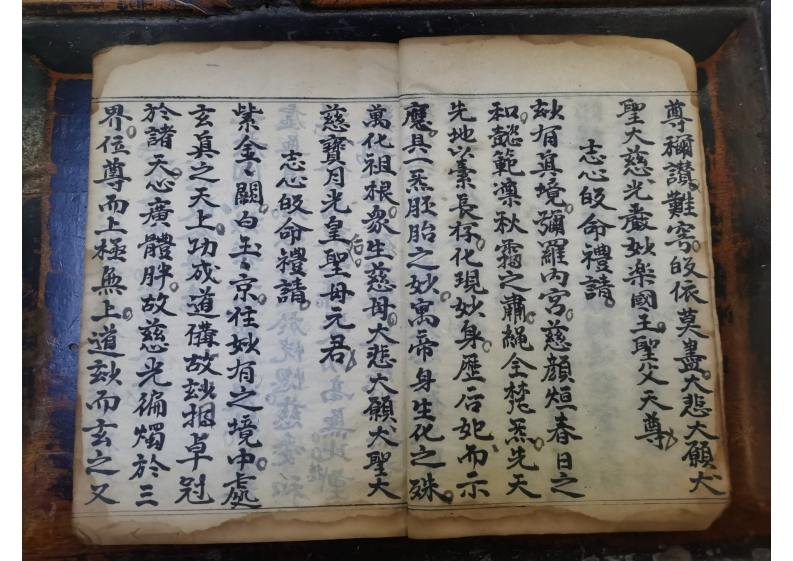 尊稱讃難穹。皈依莫盡。大悲大願大
聖大慈光嚴妙楽國王。聖父天尊
志心皈命禮請。
玅有真境。彌羅内宮。慈顔烜春日之
和。懿範凜秋霜之肅。繩全梵炁。先天
先地以素長存。化現妙身。歷后妃而示
應。具一炁胚胎之妙。寓帝身生化之殊。
萬化祖根。衆生慈母。大悲大願大聖大
慈寶月光皇后聖母元君
志心皈命禮請。
紫金〻闕。白玉〻京。住妙有之境中。處
玄真之天上。功成道備。故玅摑卓冠
於諸天。心廣體胖。故慈光徧燭於三
界。位尊而上極無上。道玅而玄之又